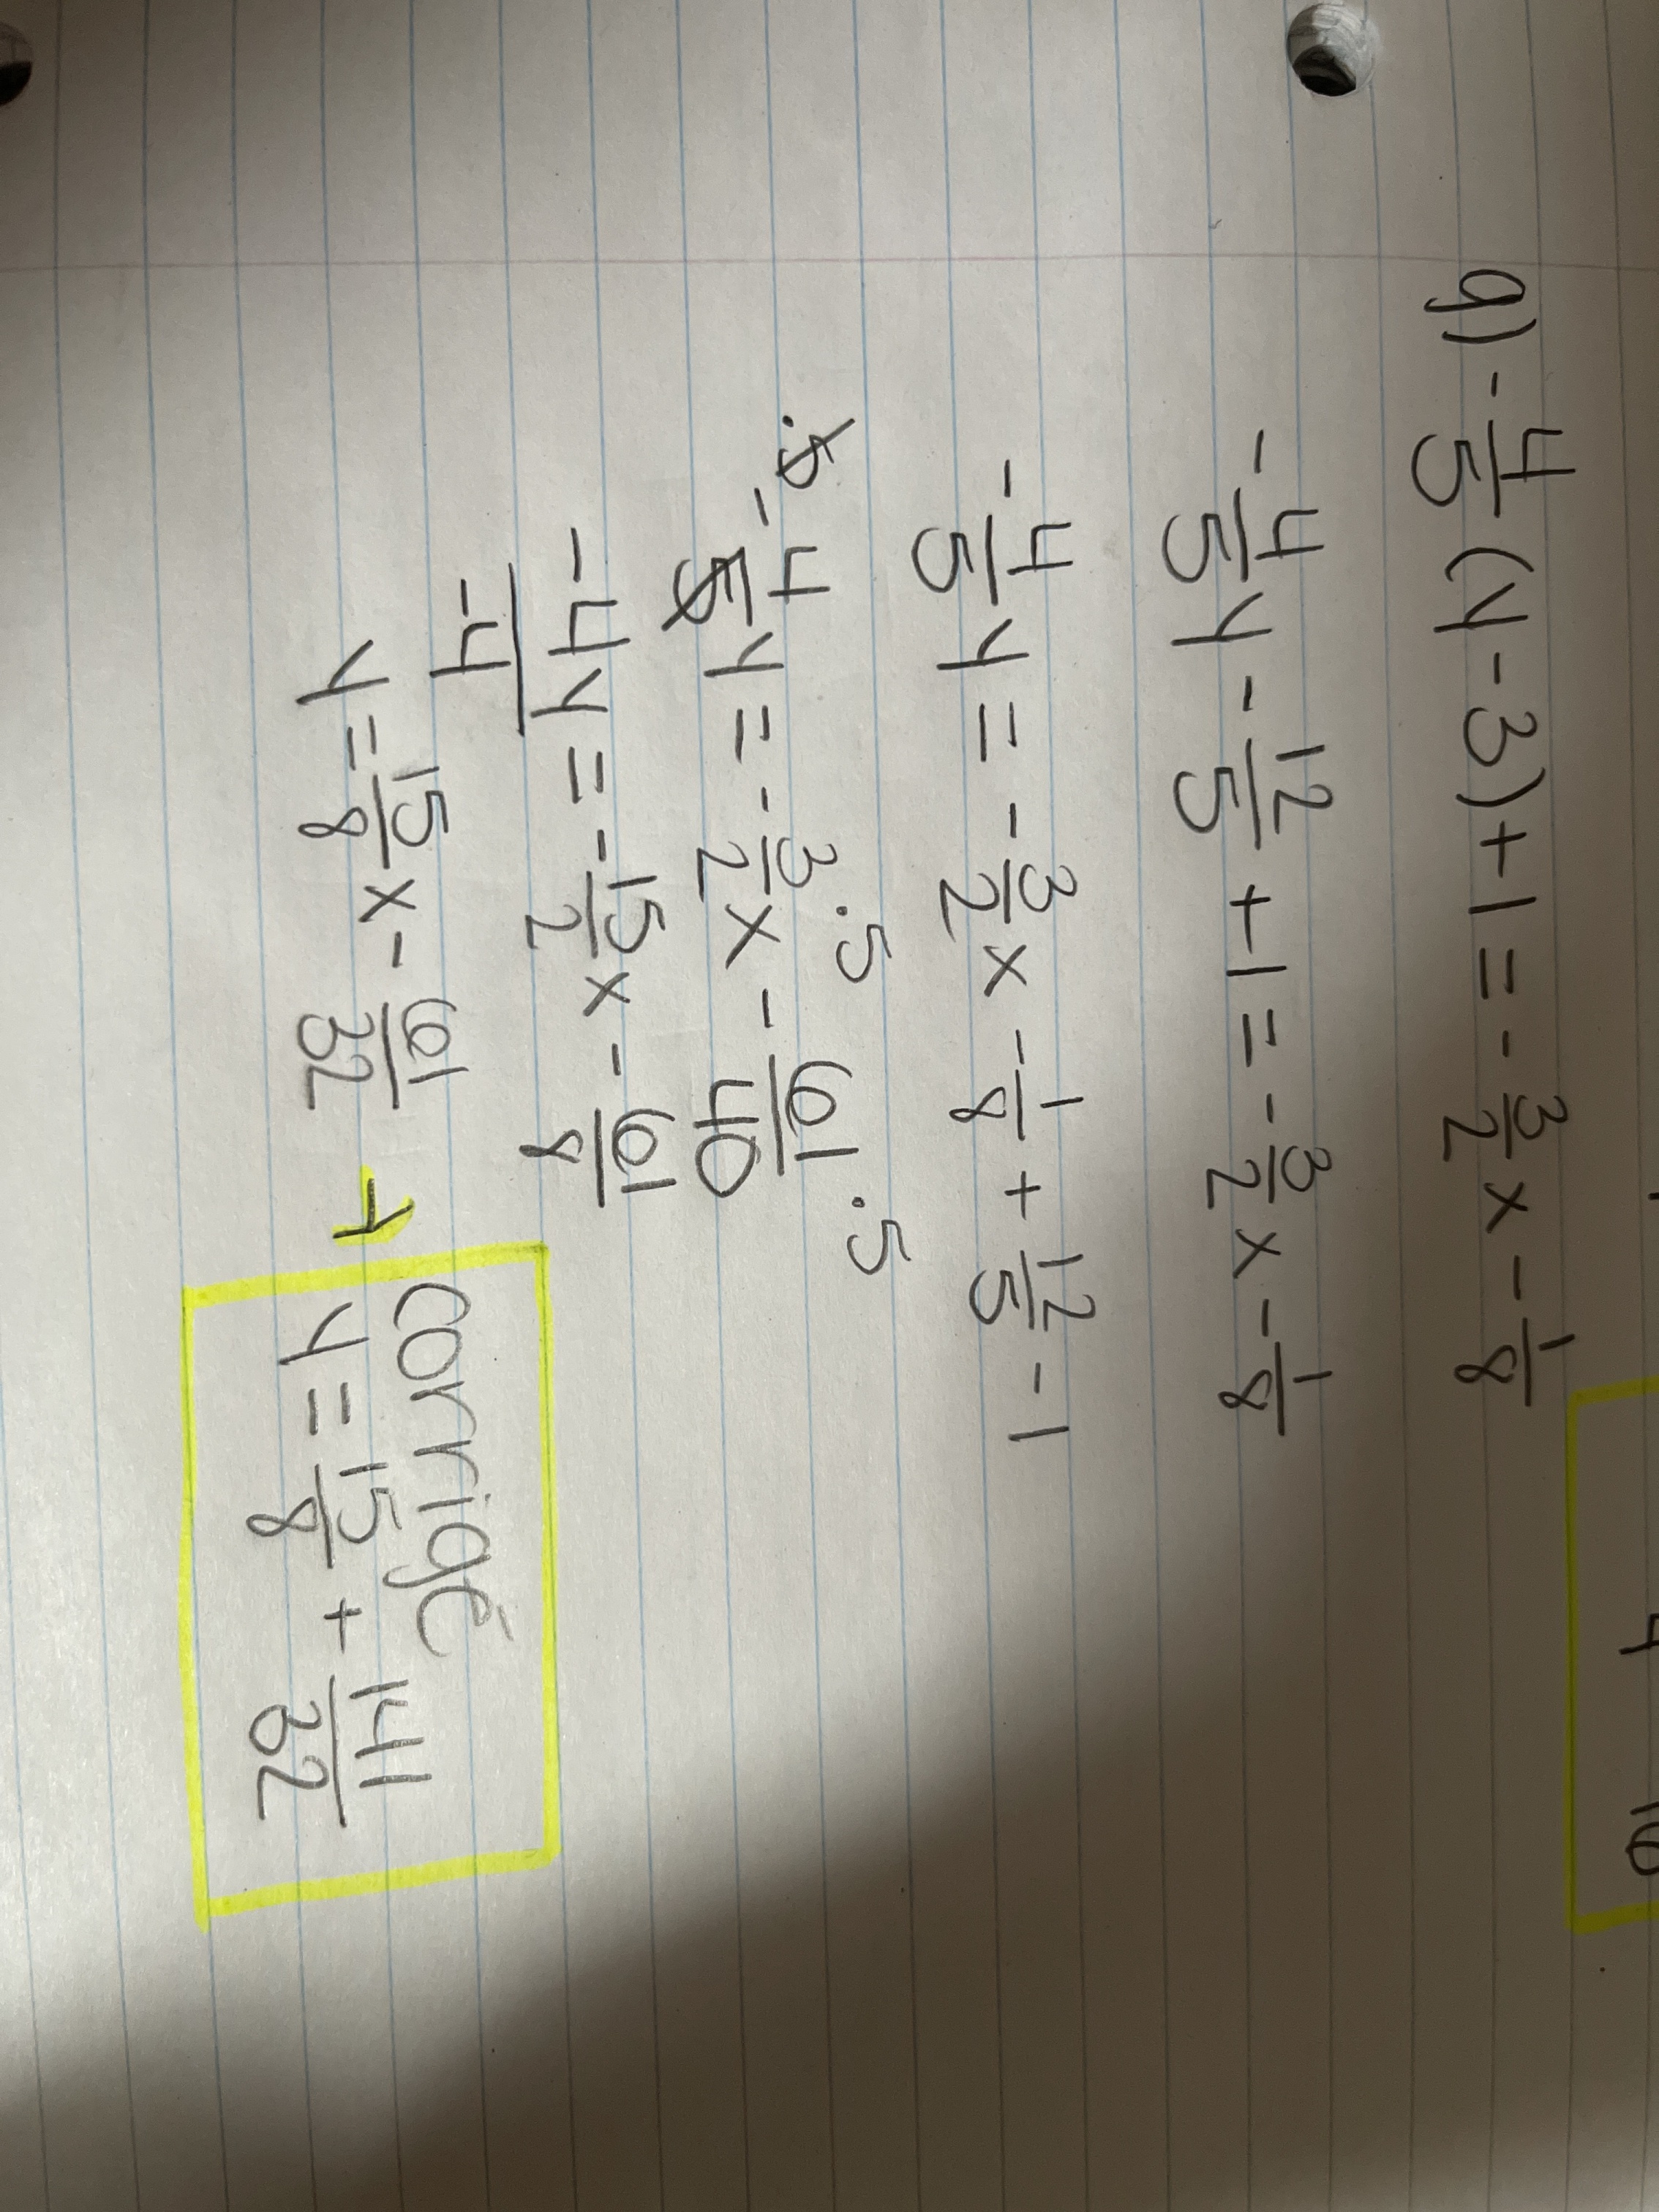 4 16
q) -4/5(y-3)+1=-3/2x-1/8
-4/5y-12/5+1=-3/2x-1/8
-4/5y=-3/2x-1/8+12/5-1
·5 -4/5y=-3/2x·5-61/40·5
-4y/-4=-15/2x-61/8
y=15/8x-61/32 → corrigé
y=15/8+141/32